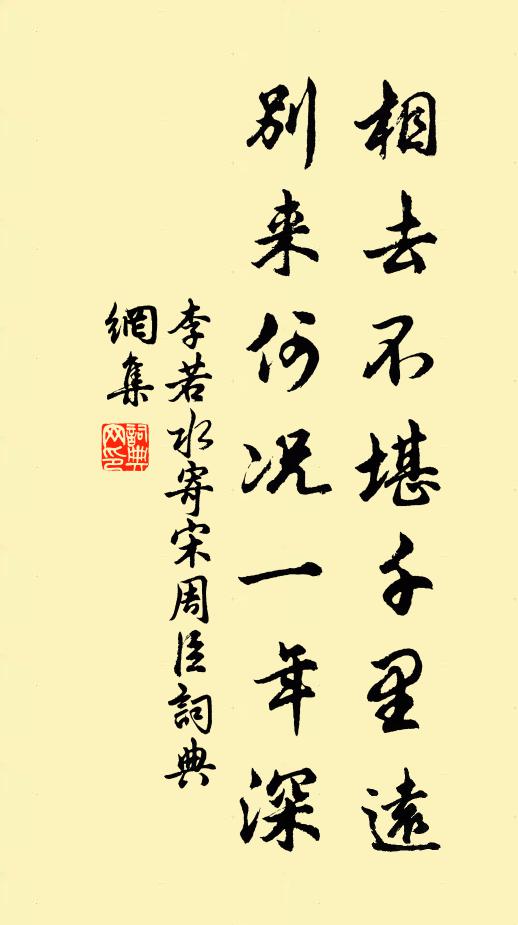 相去不堪千里遠
別来何况一年深
李若水寄宋周臣詞典
網集
詞典
网印